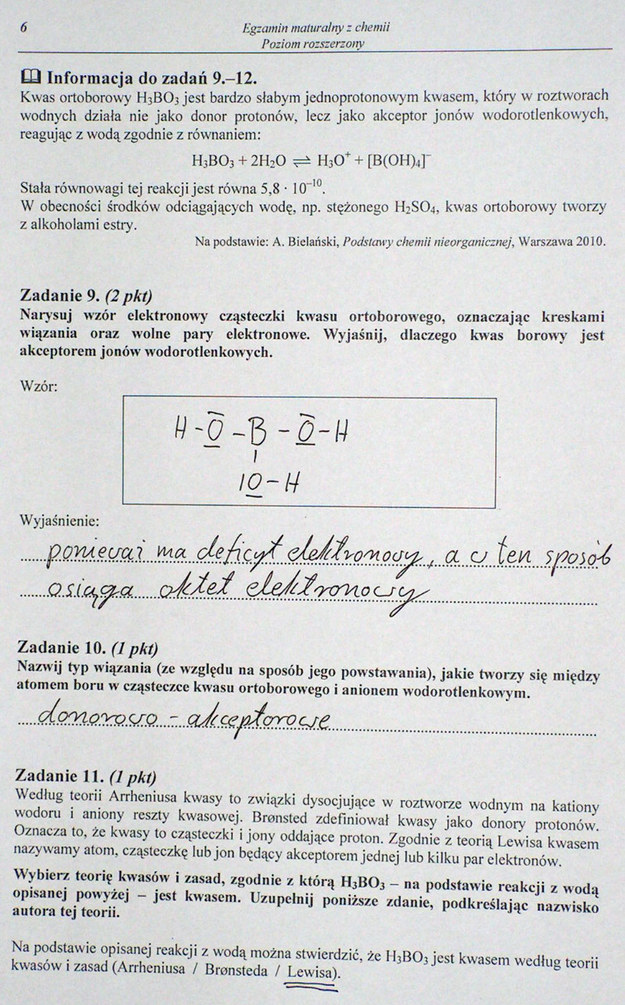 6
Egzamin maturalny z chemii
Poziom rozszerzony
Informacja do zadań 9.–12.
Kwas ortoborowy H₃BO₃ jest bardzo słabym jednoprotonowym kwasem, który w roztworach
wodnych działa nie jako donor protonów, lecz jako akceptor jonów wodorotlenkowych,
reagując z wodą zgodnie z równaniem:
H₃BO₃ + 2H₂O ⇌ H₃O⁺ + [B(OH)₄]⁻
Stała równowagi tej reakcji jest równa 5,8 · 10⁻¹⁰.
W obecności środków odciągających wodę, np. stężonego H₂SO₄, kwas ortoborowy tworzy
z alkoholami estry.
Na podstawie: A. Bielański, Podstawy chemii nieorganicznej, Warszawa 2010.
Zadanie 9. (2 pkt)
Narysuj wzór elektronowy cząsteczki kwasu ortoborowego, oznaczając kreskami
wiązania oraz wolne pary elektronowe. Wyjaśnij, dlaczego kwas borowy jest
akceptorem jonów wodorotlenkowych.
Wzór:
H - O - B - O - H
|
|O - H
Wyjaśnienie:
ponieważ ma deficyt elektronowy, a w ten sposób
osiąga oktet elektronowy
Zadanie 10. (1 pkt)
Nazwij typ wiązania (ze względu na sposób jego powstawania), jakie tworzy się między
atomem boru w cząsteczce kwasu ortoborowego i anionem wodorotlenkowym.
donorowo - akceptorowe
Zadanie 11. (1 pkt)
Według teorii Arrheniusa kwasy to związki dysocjujące w roztworze wodnym na kationy
wodoru i aniony reszty kwasowej. Brønsted zdefiniował kwasy jako donory protonów.
Oznacza to, że kwasy to cząsteczki i jony oddające proton. Zgodnie z teorią Lewisa kwasem
nazywamy atom, cząsteczkę lub jon będący akceptorem jednej lub kilku par elektronów.
Wybierz teorię kwasów i zasad, zgodnie z którą H₃BO₃ – na podstawie reakcji z wodą
opisanej powyżej – jest kwasem. Uzupełnij poniższe zdanie, podkreślając nazwisko
autora tej teorii.
Na podstawie opisanej reakcji z wodą można stwierdzić, że H₃BO₃ jest kwasem według teorii
kwasów i zasad (Arrheniusa / Brønsteda / Lewisa).